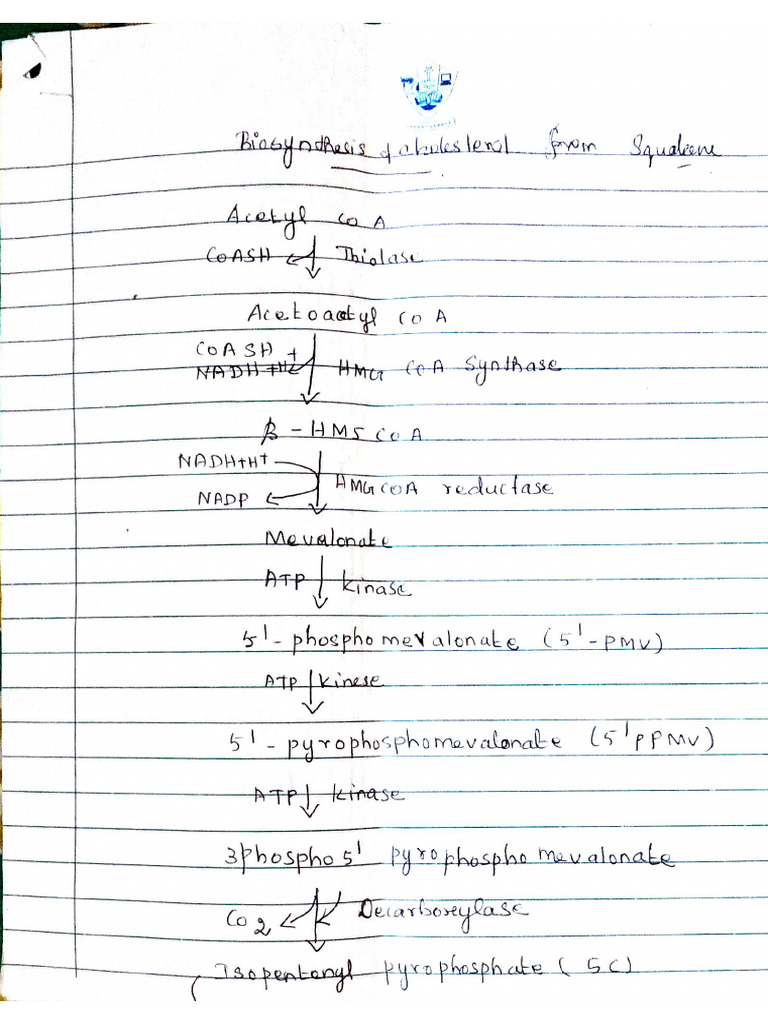 Biosynthesis of cholesterol from Squalene
Acetyl CoA
CoASH Thiolase
Acetoactyl CoA
COASH +
NADH+H HMG COA Synthase
β-HMS COA
NADH+H+
NADP HMG COA reductase
Mevalonate
ATP kinase
5'-phosphomevalonate (5'-PMV)
ATP kinese
5'-pyrophosphomevalonate (5'PPMV)
ATP kinase
3phospho5' pyrophosphomevalonate
Co2 Decarboxylase
Isopentenyl pyrophosphate (5C)